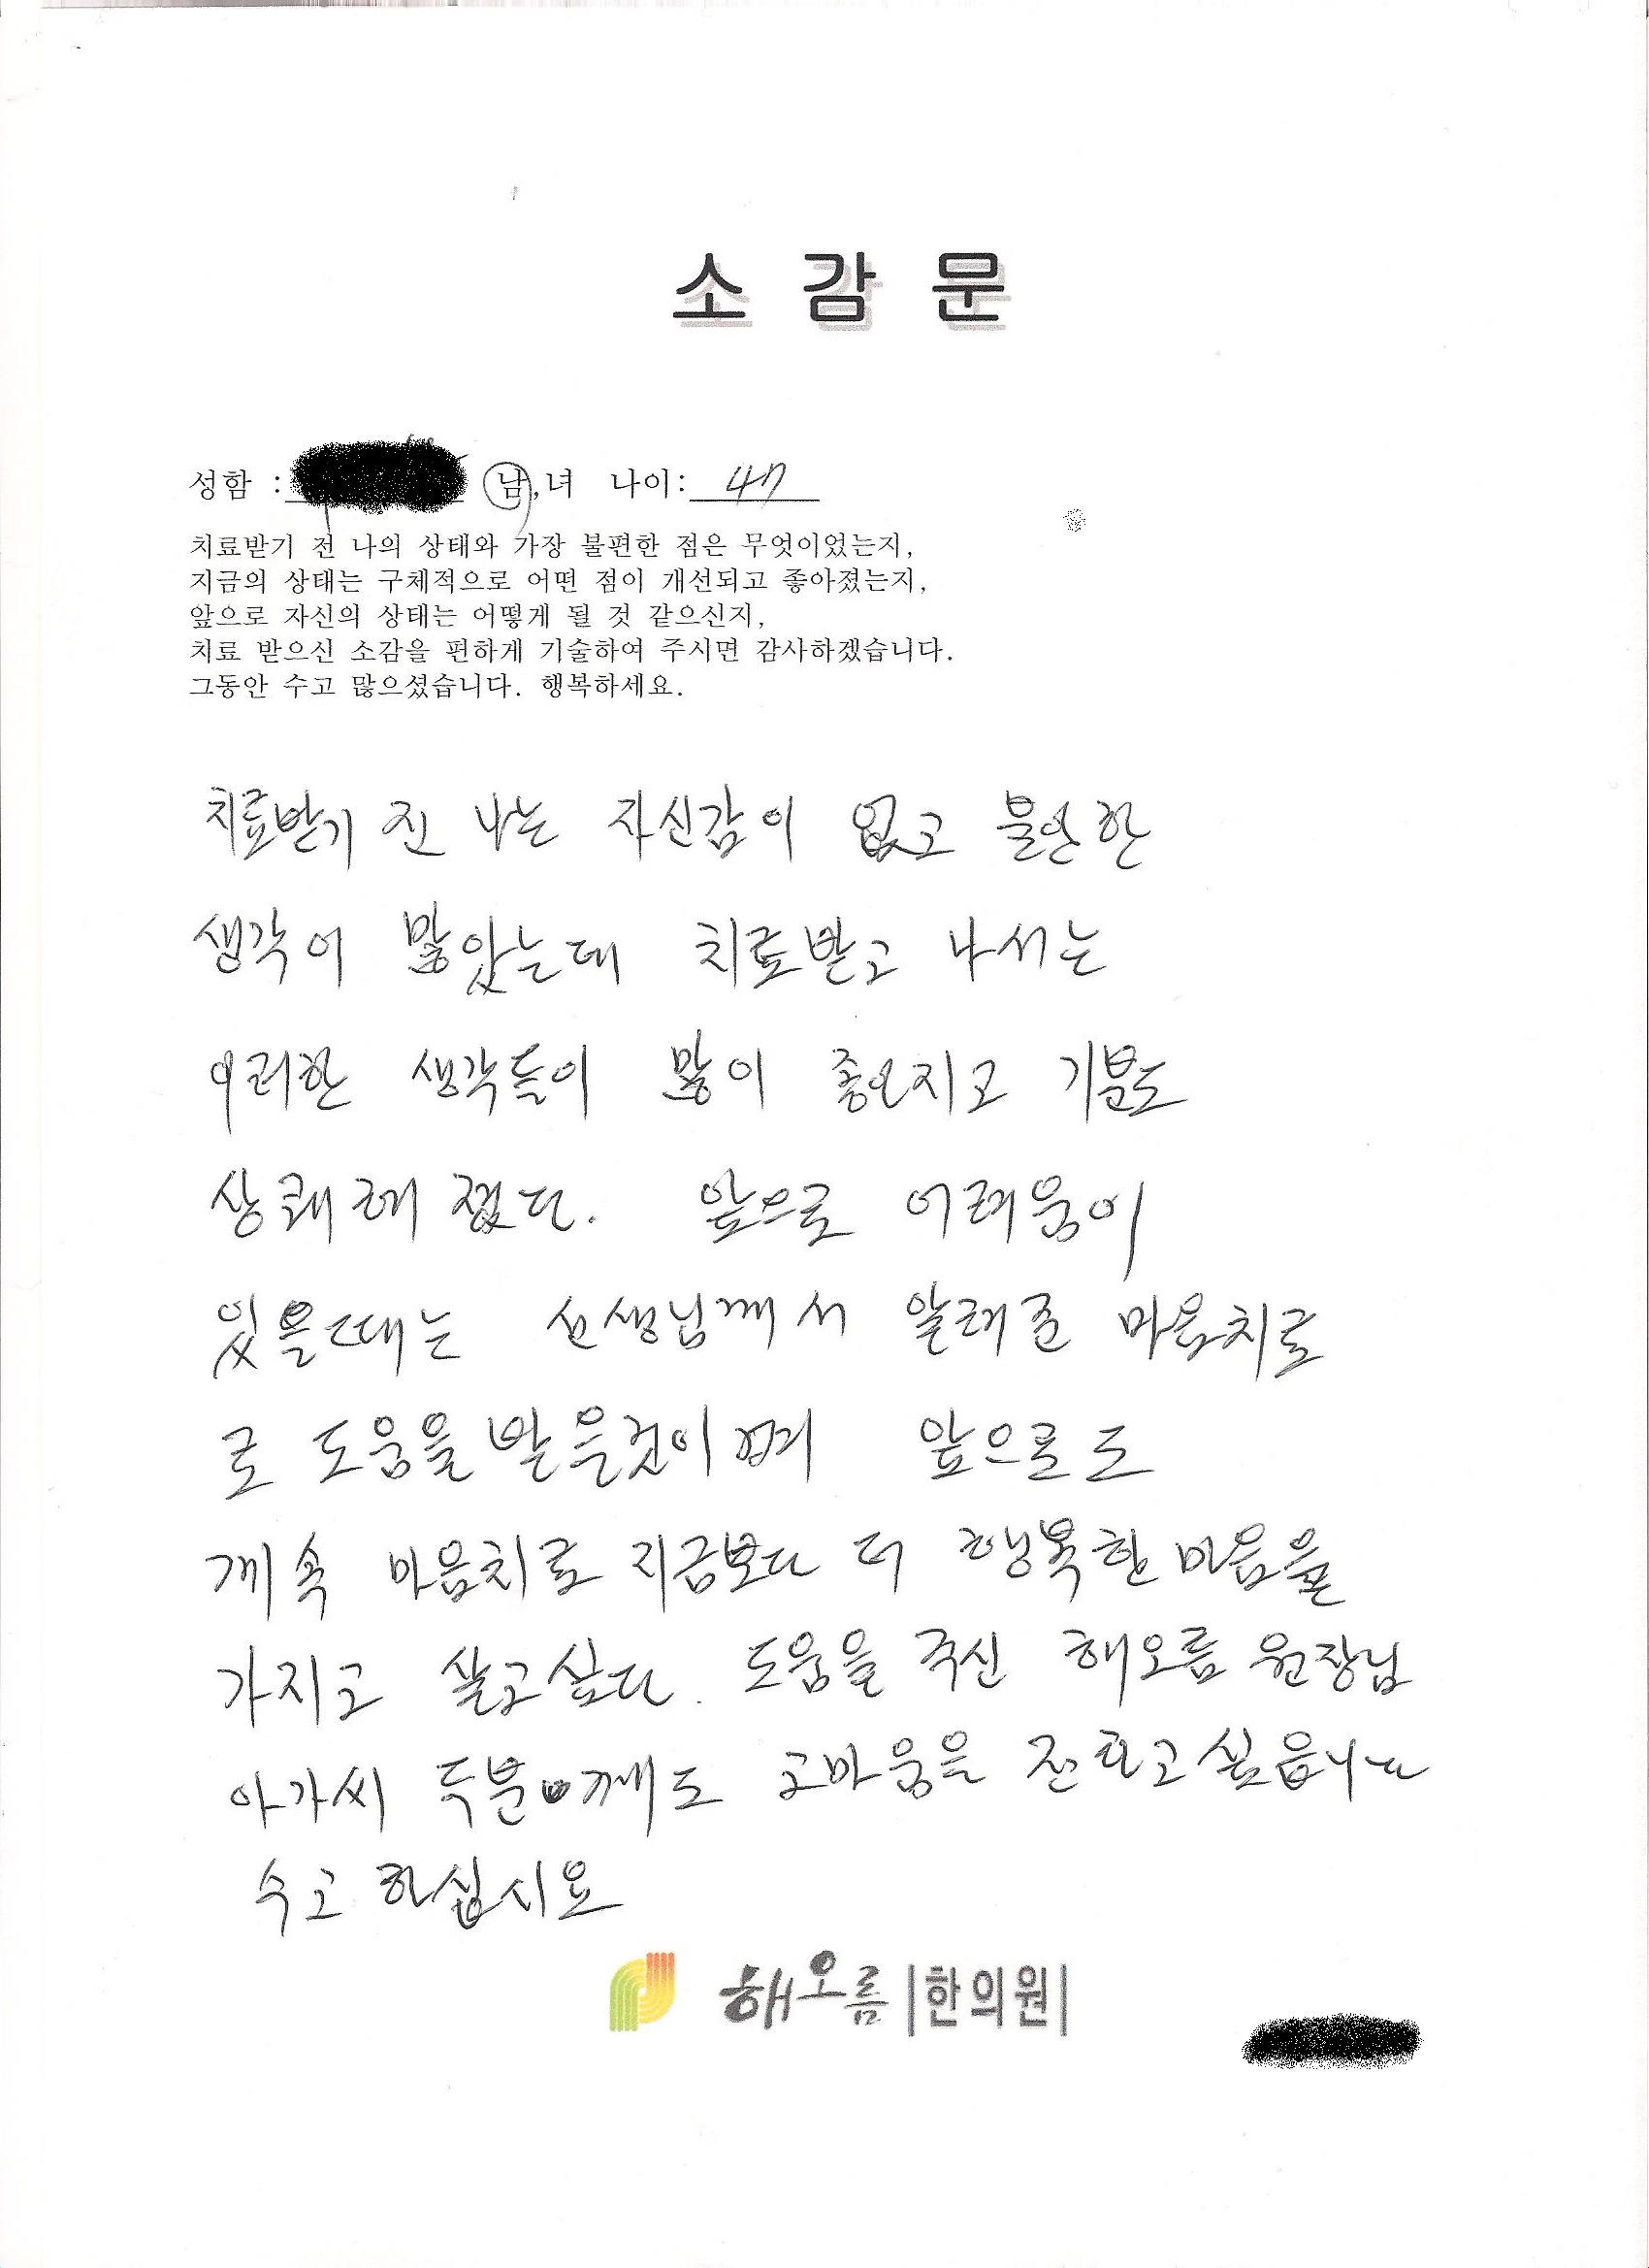 소 감 문
성함 : 남,녀 나이: 47
치료받기 전 나의 상태와 가장 불편한 점은 무엇이었는지,
지금의 상태는 구체적으로 어떤 점이 개선되고 좋아졌는지,
앞으로 자신의 상태는 어떻게 될 것 같으신지,
치료 받으신 소감을 편하게 기술하여 주시면 감사하겠습니다.
그동안 수고 많으셨습니다. 행복하세요.
치료받기 전 나는 자신감이 없고 불안한
생각이 많았는데 치료받고 나서는
이러한 생각들이 많이 좋아지고 기분도
상쾌해 졌다. 앞으로 어려움이
있을때는 선생님께서 알려준 마음치료
로 도움을 받을것이며 앞으로도
계속 마음치료 지금보다 더 행복한 마음을
가지고 살고싶다. 도움을 주신 해오름 원장님
아가씨 두분께도 고마움을 전하고싶읍니다
수고 하십시요
해오름 |한의원|